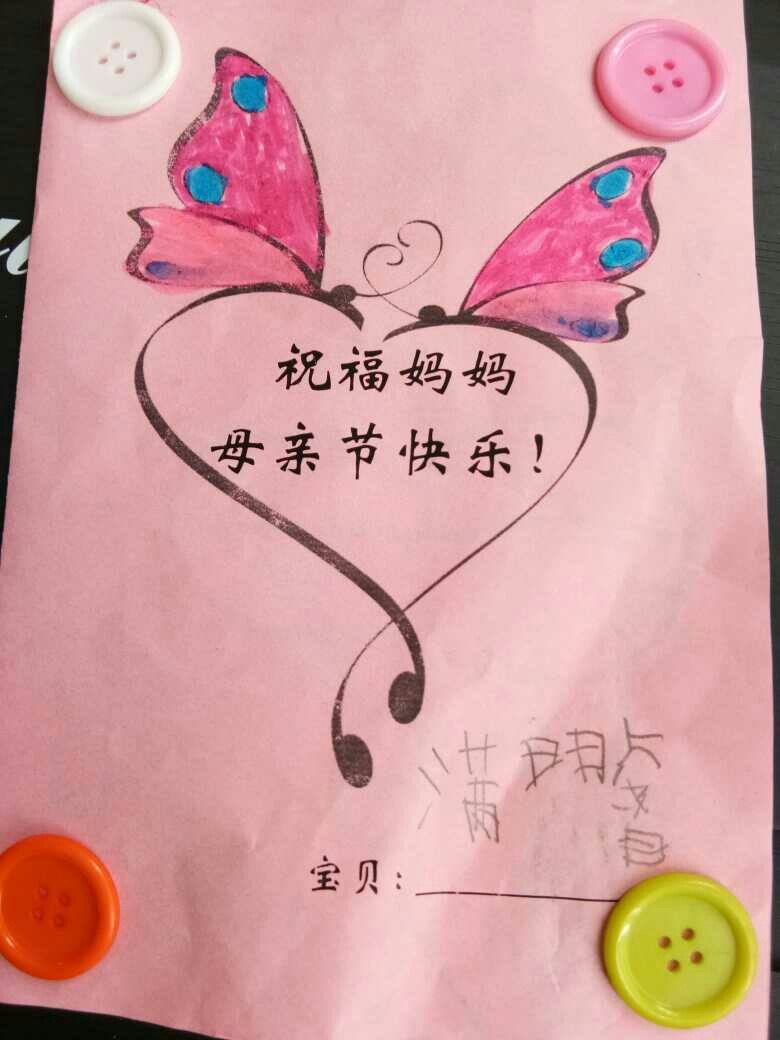 祝福妈妈
母亲节快乐！
满明
宝贝：